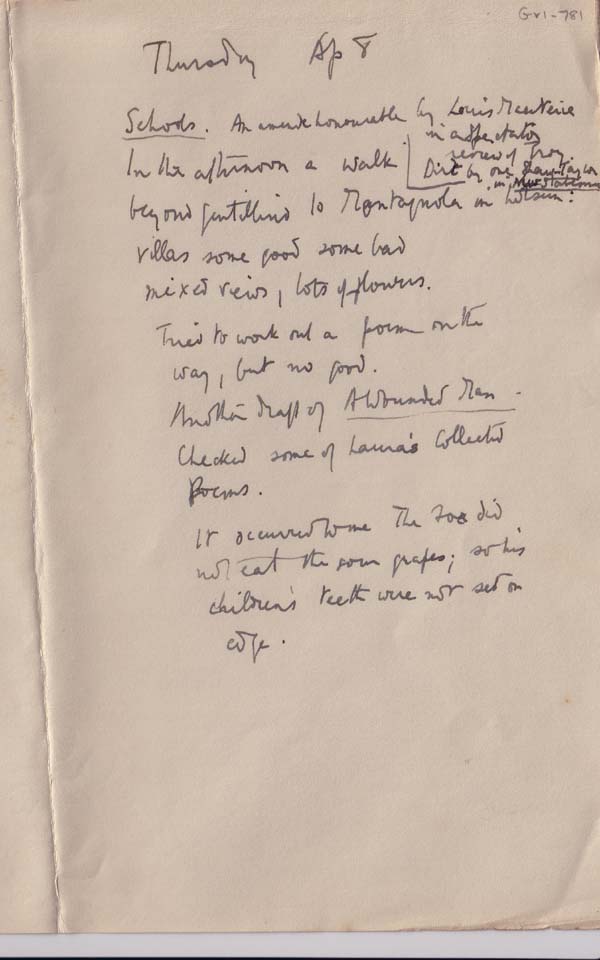 Gr1-781
Thursday Ap 8
Schools. An amende honourable by Louis MacNeice
in a Spectator
review of Troy
In the afternoon a walk
Dirt by one
in New Statesman
beyond Gentilino to Montagnola in hot sun:
villas some good some bad
mixed views, lots of flowers.
Tried to work out a poem on the
way, but no good.
Another draft of A Wounded Man.
Checked some of Laura's Collected
Poems.
It occurred to me The Fox did
not eat the sour grapes; so his
children's teeth were not set on
edge.